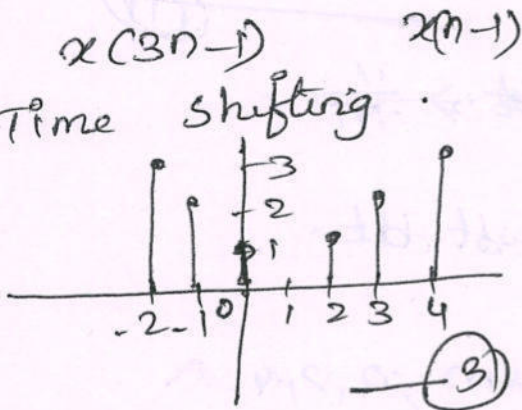 x(3n-1) x(n-1)
Time shifting .
3
2
1
-2 -1 0 1 2 3 4
3